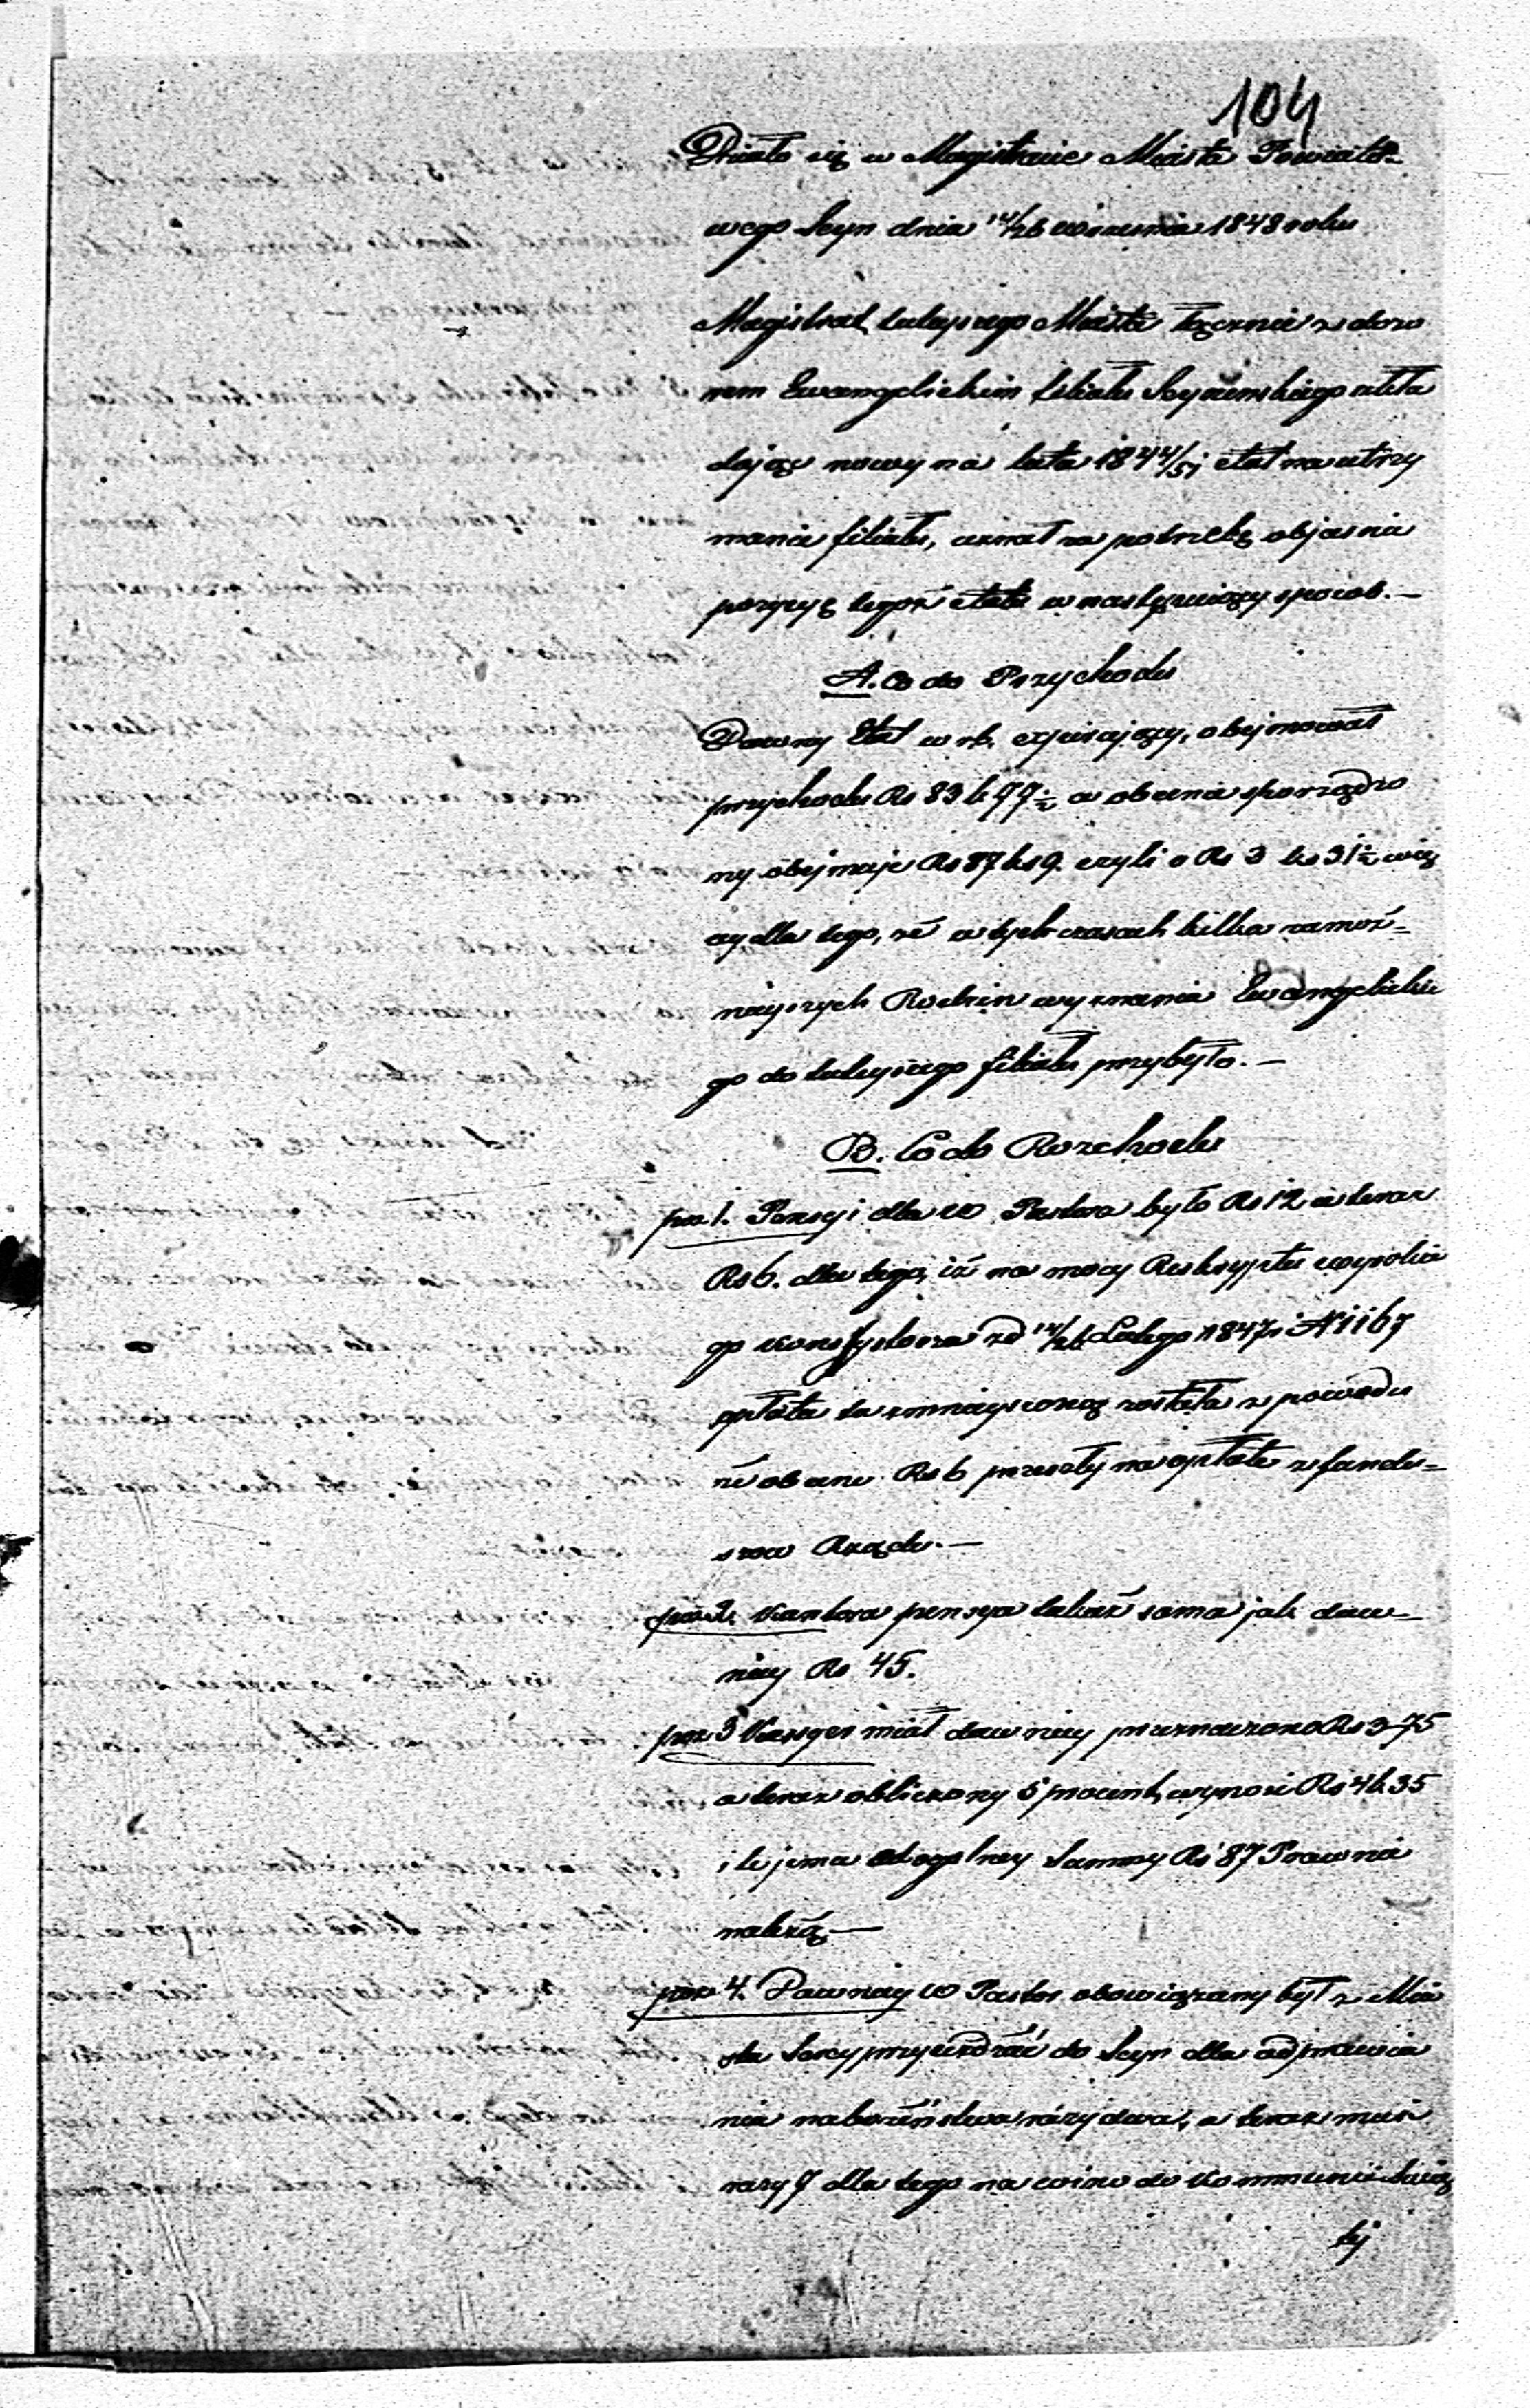 104
Działo się w Magistracie Miasta Powiato-
wego Seyn dnia 14/26 września 1848 roku
Magistrat tuteyszego Miasta łącznie z dozo
rem Ewangelickim filiału Seynenskiego ukła
dając nowy na lata 18 /51 etat na utrzy
mania filiału, uznał za potrzebę objasnia
pozycyę tegoż etatu w następuiący sposob.—
A. Co do Przychodu
Dawny Etat w rb. expirujący, obejmował
przychodu Rs 83 k 77½ a obecnie sporządzo
ny obejmuje Rs 87 ks 9. czyli o Rs 3 ks 31½ wię
cy dla tego, że w tych czasach kilka zamoż-
nieyszych Rodzin wyznania Ewangelickie
go do tuteyszego filiału przybyło.—
B. Co do Rozchodu
poz 1. Pensyi dla W Pastora było Rs 12 a teraz
Rs 6. dla tego, iż na mocy Reskryptu wysokie
go Konsystorza z d 14/26 Lutego 1847 r N 1167
opłata ta zmnieyszoną została z powodu
że obecnie Rs 6 przeszły na opłatę z fundu-
szow Rządu.—
poz 2. Kantora pensya takaż sama jak daw-
niey Rs 45.
poz 3 Kassyer miał dawniey przeznaczono Rs 3 75
a teraz obliczony 5 procent, wynosi Rs 4 k 35
i te jemu od ogolney Summy Rs 87 Prawnie
należą—
poz 4. Dawniey W Pastor obowiązany był z Mia
sta przyieżdżać do Seyn dla odprawia
nia nabożeństwa razy dwa, a teraz musi
razy 7 dla tego na wino do Kommunii
tej